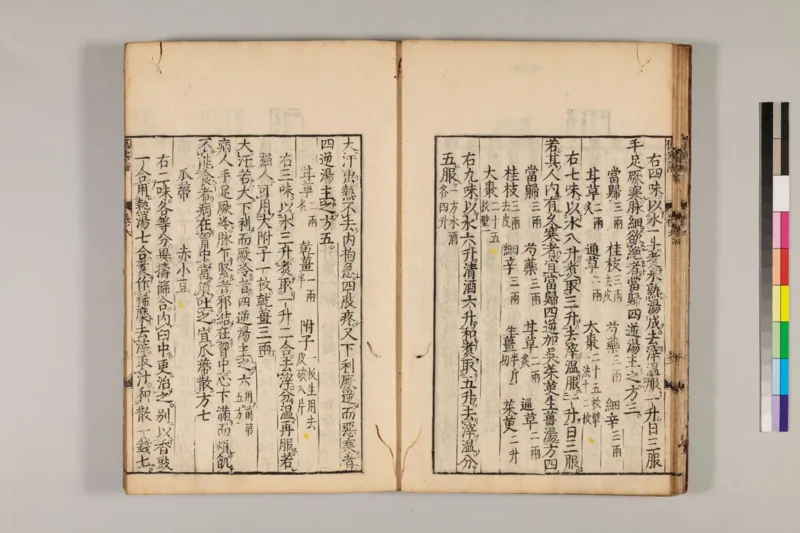 右四味以水一斗煮米熟湯成去滓溫服一升日三服
手足厥寒脉細欲絕者當歸四逆湯主之方三
當歸三兩 桂枝三兩去皮 芍藥三兩 細辛三兩
甘草二兩炙 通草二兩 大棗二十五枚擘一法十二枚
右七味以水八升煮取三升去滓溫服一升日三服
若其人內有久寒者宜當歸四逆加吳茱萸生薑湯方四
當歸三兩 芍藥三兩 甘草二兩炙 通草二兩
桂枝三兩去皮 細辛三兩 生薑半斤切 茱萸二升
大棗二十五枚擘
右九味以水六升清酒六升和煮取五升去滓溫分
五服一方水酒各四升
大汗出熱不去內拘急四肢疼又下利厥逆而惡寒者
四逆湯主之方五
甘草二兩炙 乾薑一兩半 附子一枚生用去皮破八片
右三味以水三升煮取一升二合去滓分溫再服若
強人可用大附子一枚乾薑三兩
大汗若大下利而厥冷者四逆湯主之六用前第五方
病人手足厥冷脉乍緊者邪結在胸中心下滿而煩飢
不能食者病在胸中當須吐之宜瓜蒂散方七
瓜蒂 赤小豆
右二味各等分異擣篩合內臼中更治之別以香豉
一合用熱湯七合煮作稀糜去滓取汁和散一錢七